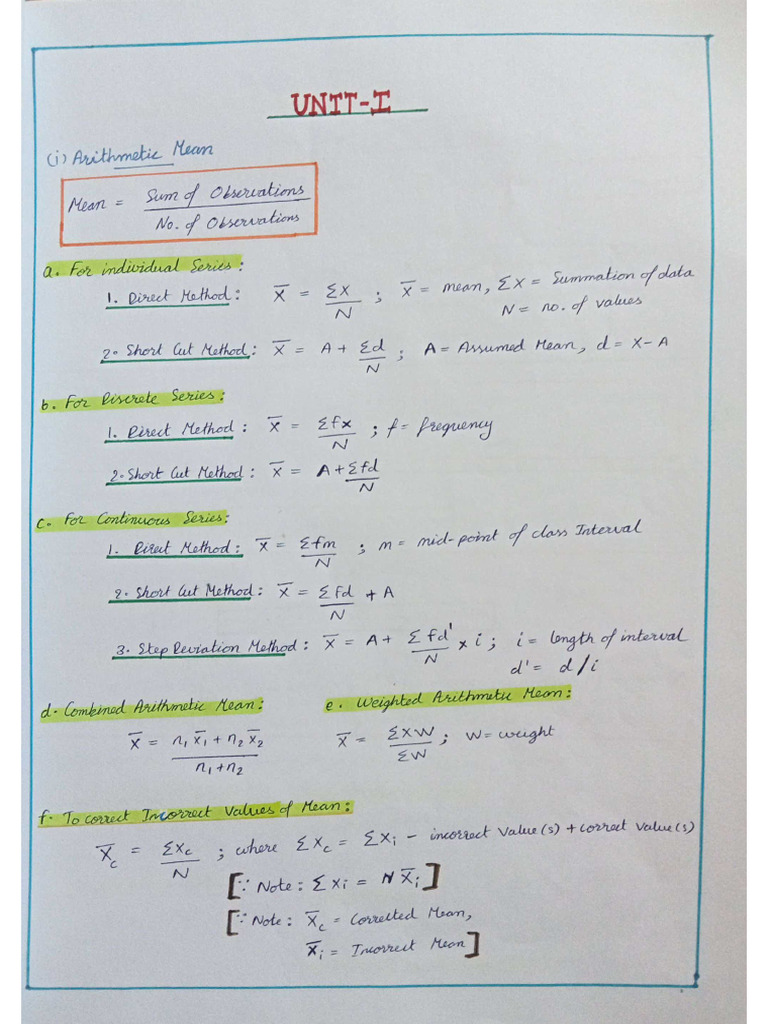 UNIT-I
(i) Arithmetic Mean
Mean = Sum of Observations / No. of Observations
a. For individual Series:
1. Direct Method: X̄ = ΣX / N ; X̄ = mean, ΣX = Summation of data
N = no. of values
2. Short Cut Method: X̄ = A + Σd / N ; A = Assumed Mean, d = X - A
b. For Discrete Series:
1. Direct Method: X̄ = Σfx / N ; f = frequency
2. Short Cut Method: X̄ = A + Σfd / N
c. For Continuous Series:
1. Direct Method: X̄ = Σfm / N ; m = mid-point of class Interval
2. Short Cut Method: X̄ = Σfd / N + A
3. Step Deviation Method: X̄ = A + Σfd' / N × i ; i = length of interval
d' = d/i
d. Combined Arithmetic Mean:
X̄ = n₁X̄₁ + n₂X̄₂ / n₁+n₂
e. Weighted Arithmetic Mean:
X̄ = ΣXW / ΣW ; W = weight
f. To correct Incorrect Values of Mean:
X̄c = ΣXc / N ; where ΣXc = ΣXi - incorrect value(s) + correct value(s)
[∵ Note: ΣXi = N X̄i]
[∵ Note: X̄c = Corrected Mean,
X̄i = Incorrect Mean]